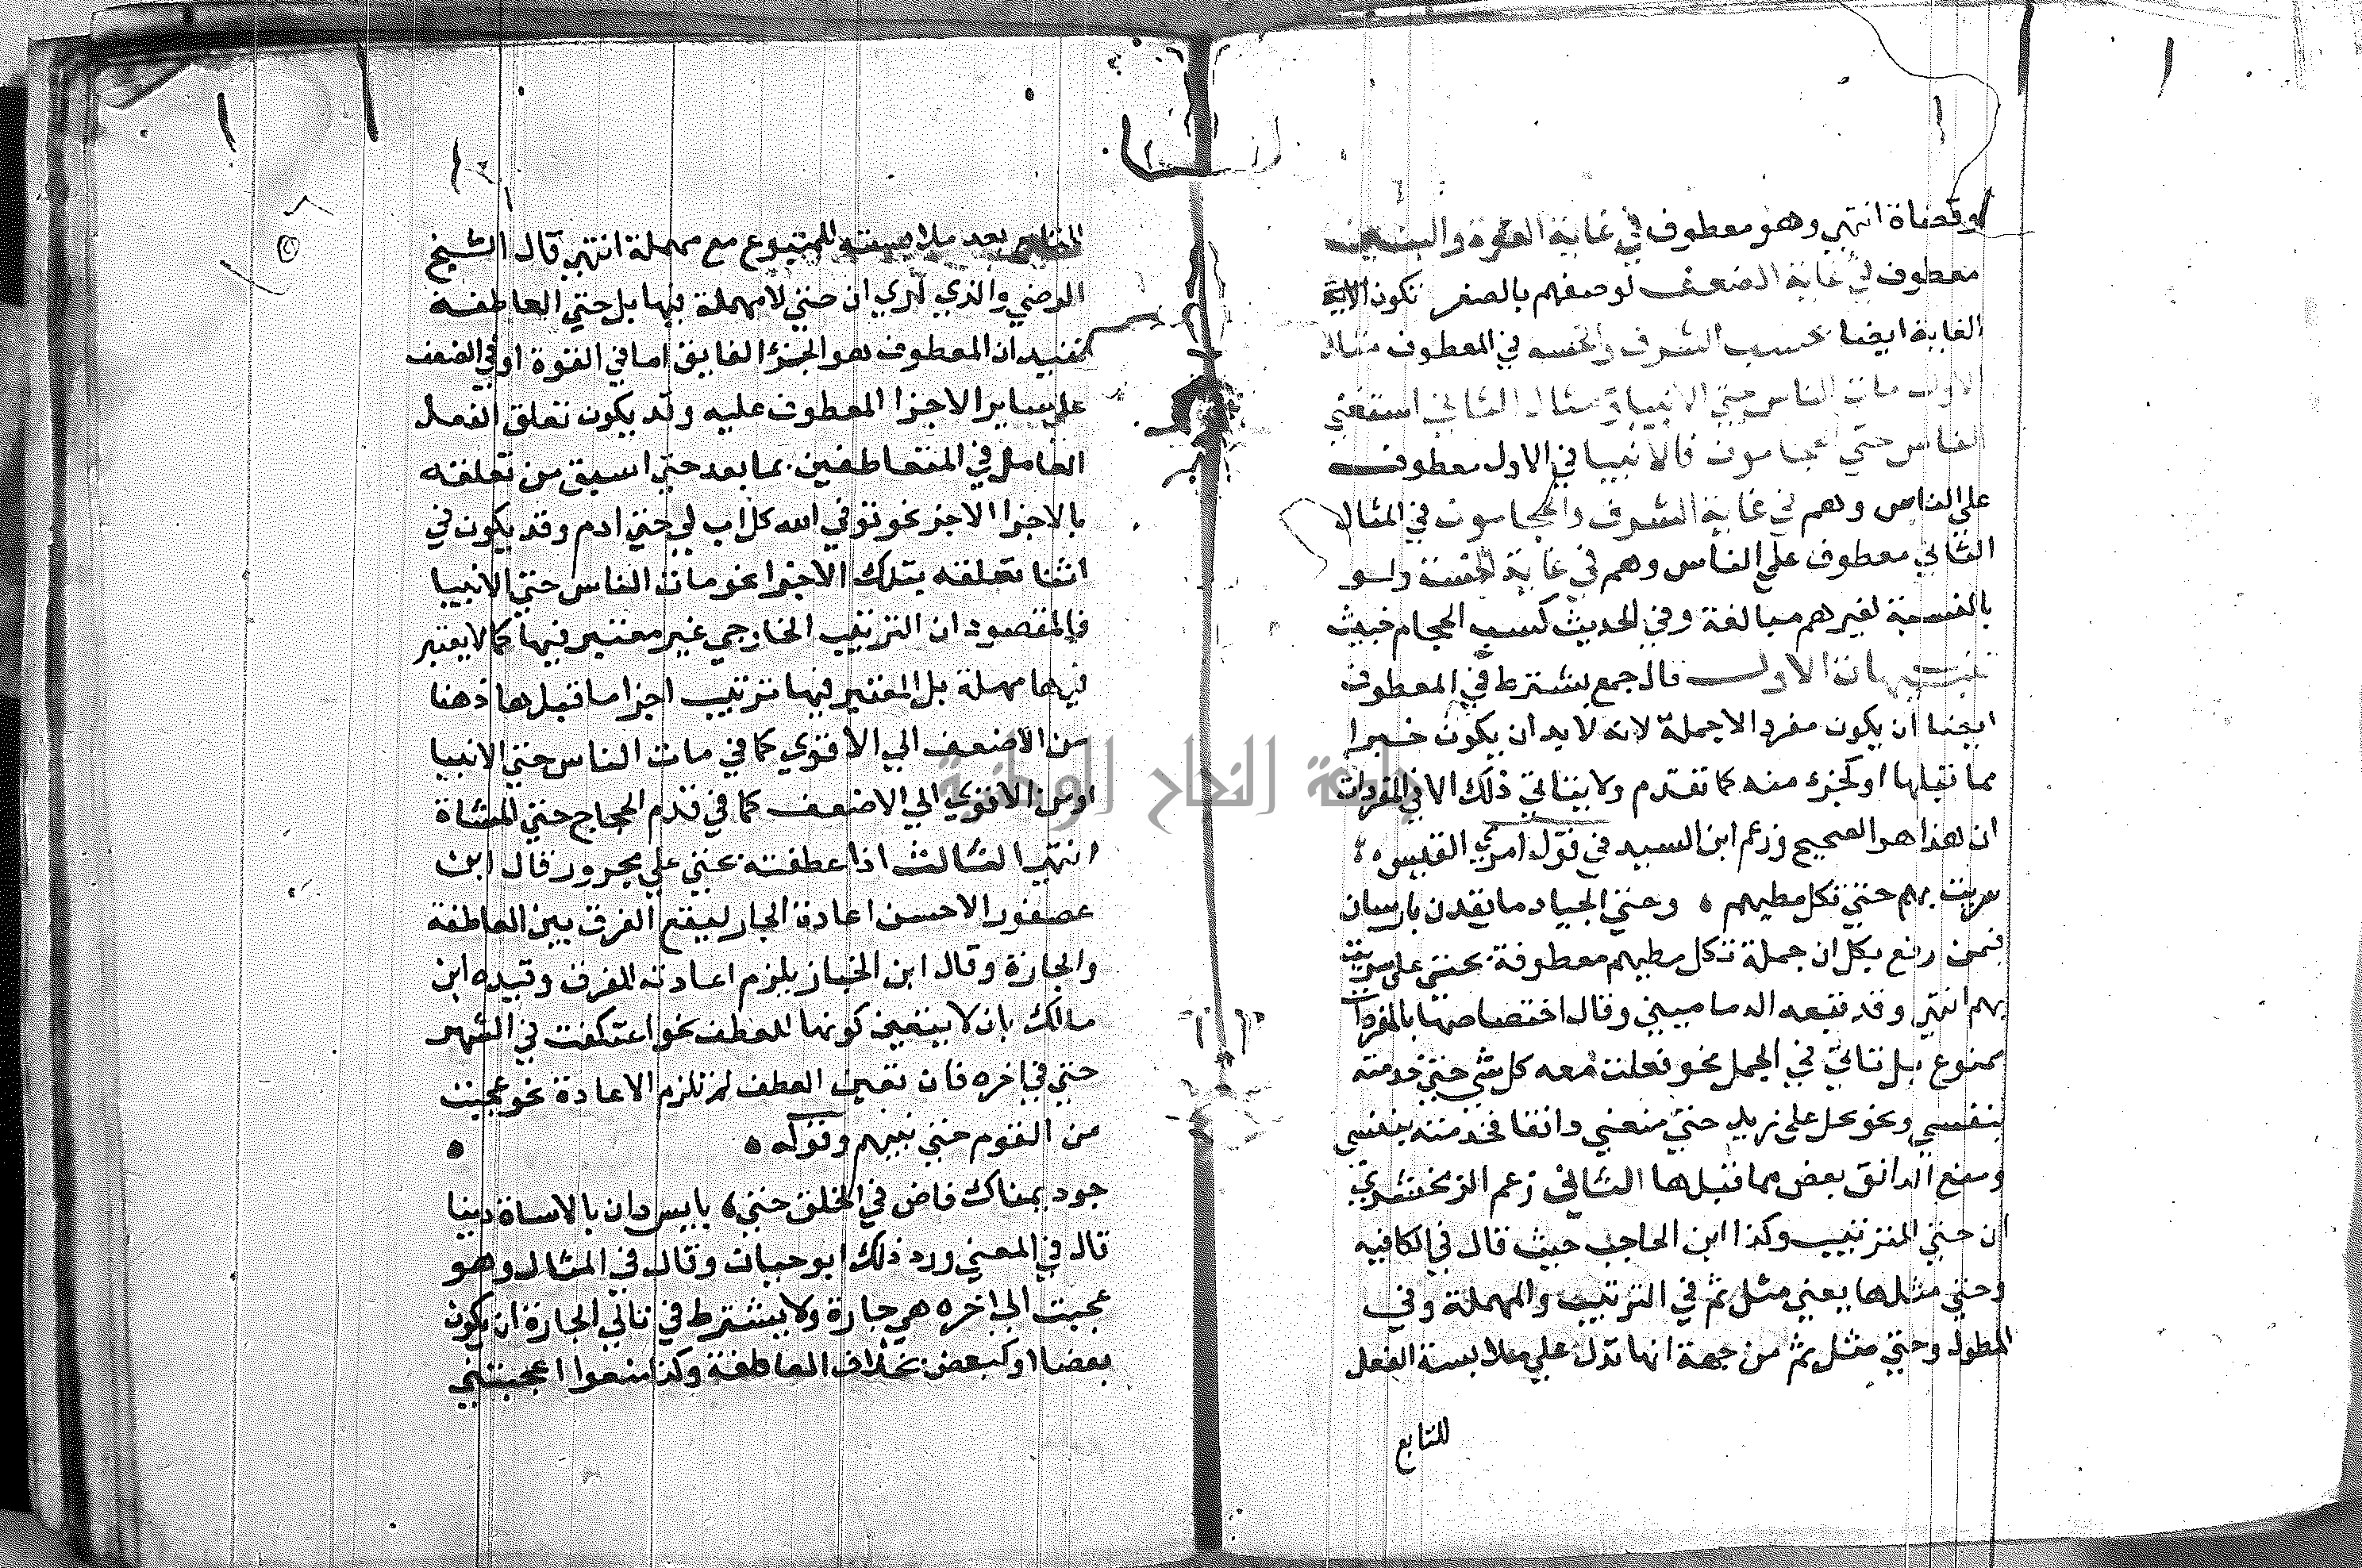 وقضاة انتهي وهو معطوف في غاية القوة والبنين
معطوف في غاية الضعف لوصفهم بالصغر تكون الاية
الغاية ايضا بحسب الشرف والخسه في المعطوف مثال
الاول مات الناس حتي الانبيا ومثال الثاني استغني
الناس حتي الحجامون فالانبيا في الاول معطوف
علي الناس وهم في غاية الشرف والحجامون في المثال
الثاني معطوف علي الناس وهم في غاية الخسة ولو
بالنسبة لغيرهم مبالغة وفي الحديث كسب الحجام خبيث
تنبيهات الاول قال جمع يشترط في المعطوف
ايضا ان يكون مفردا لاجملة لانه لابد ان يكون جزءا
مما قبلها او كجزء منه كما تقدم ولا يتاتي ذلك الا في المفردات
ان هذا هو الصحيح وزعم ابن السيد في قول امري القيس
سريت بهم حتي تكل مطيهم ه وحتي الجياد ما يقدن بارسان
فمن رفع بكل ان جملة تكل مطيهم معطوفة بحتي علي سريت
بهم انتهي وقد تبعه الدماميني وقال اختصاصها بالمفردات
ممنوع بل تاتي في الجمل نحو فعلت معه كل شي حتي خدمته
بنفسي ونحو بخل علي زيد حتي منعني دانقا فخدمته بنفسي
ومنع الدانق بعض مما قبلها الثاني زعم الزمخشري
ان حتي للترتيب وكذا ابن الحاجب حيث قال في الكافيه
وحتي مثلها يعني مثل ثم في الترتيب والمهملة وفي
المطول وحتي مثل ثم من جهة انها تدل علي ملابسة الفعل
للتابع
للتابع بعد ملابسته للمتبوع مع مهملة انتهي قال الشيخ
الرضي والذي اري ان حتي لا مهملة فيها بل حتي العاطفة
تفيد ان المعطوف هو الجزء الفايق اما في القوة او في الضعف
علي ساير الاجزا المعطوف عليه وقد يكون تعلق الفعل
العامل في المتعاطفين بما بعد حتي اسبق من تعلقه
بالاجزا الاخر نحو توفي الله كل اب لي حتي ادم وقد يكون في
اثنا تعلقه بتلك الاجزا نحو مات الناس حتي الانبيا
فالمقصود ان الترتيب الخارجي غير معتبر فيها كما لا يعتبر
فيها مهملة بل المعتبر فيها ترتيب اجزا ما قبلها ذهنا
من الاضعف الي الاقوي كما في مات الناس حتي الانبيا
او من الاقوي الي الاضعف كما في قدم الحجاج حتي المشاة
انتهي الثالث اذا عطفت بحتي علي مجرور قال ابن
عصفور الاحسن اعادة الجار ليقع الفرق بين العاطفة
والجارة وقال ابن الخباز يلزم اعادته للفرق وقيده ابن
مالك بان لا يتعين كونها للعطف نحو اعتكفت في الشهر
حتي في اخره فان تعين العطف لم تلزم الاعادة نحو عجبت
من القوم حتي بنيهم وقوله ه ه
جود يمناك فاض في الخلق حتي ه بايس دان بالاساة دينا
قال في المغني ورد ذلك ابو حيان وقال في المثال وهو
عجبت الي اخره هي جارة ولا يشترط في تالي الجارة ان يكون
بعضا او كبعض بخلاف العاطفة وكذا منعوا اعجبتني
جامعة النجاح الوطنية